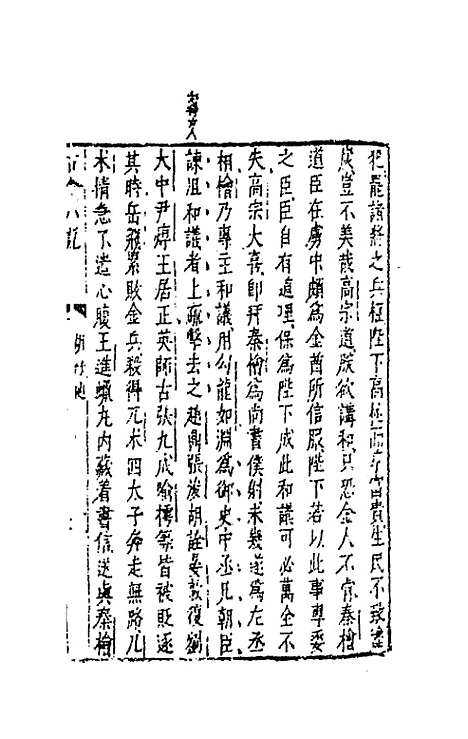 犯罷諸將之兵權陛下高枕而享富貴生民不致塗
炭豈不美哉高宗道朕欲講和只恐金人不肯秦檜
道臣在虜中頗爲金酋所信服陛下若以此事專委
之臣臣自有道理保爲陛下成此和議可必萬全不
失高宗大喜即拜秦檜爲尚書僕射未幾遂爲左丞
相檜乃專主和議用勾龍如淵爲御史中丞凡朝臣
諫沮和議者上疏擊去之趙鼎張浚胡銓晏敦復劉
大中尹焞王居正吳師古張九成喻樗等皆被貶逐
其時岳飛累敗金兵殺得兀朮四太子奔走無路兀
朮情急了遣心腹王進蠟丸內藏着書信送與秦檜
古今小說
胡母迪